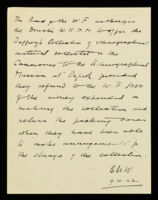 The Board of the W.F. authorizes
the Council W.H.M.M. to offer the
Jeffreys Collection of ethnographical
material collected in the
Cameroons to the Ethnographical
Museum at provided
they refund to the W.F. £200
of the money expended in
making the collection and
return the packing cases
when they have been able
to make arrangements for
the storage of the collection.